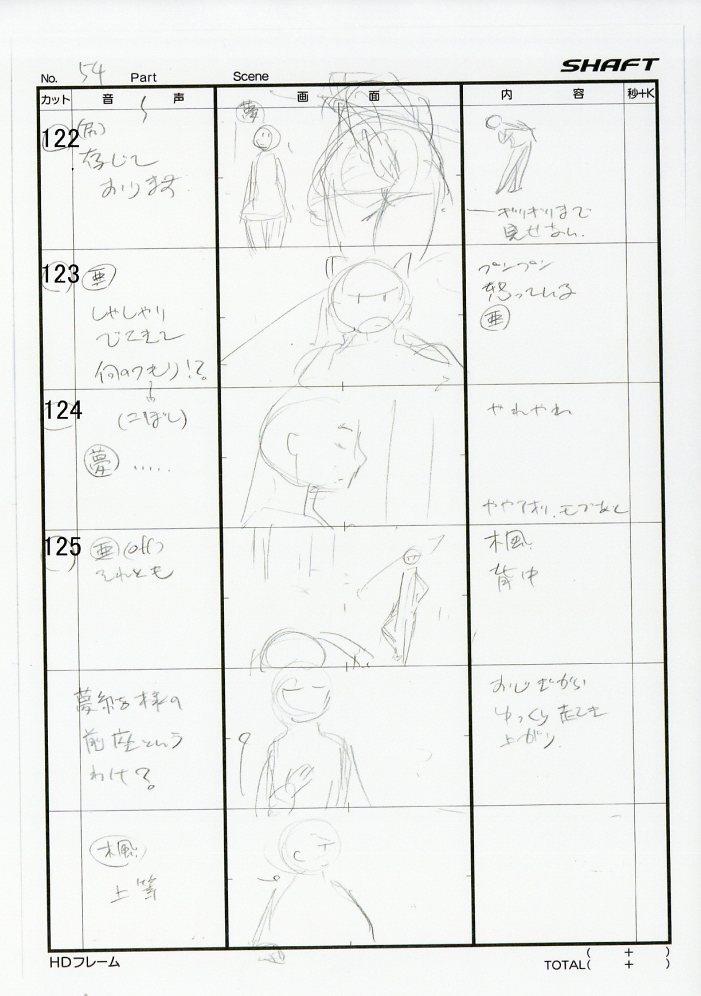 SHAFT
No. 54 Part Scene
カット 音 声 画 面 内 容 秒+K
122
存じて
おります
夢
ギリギリまで
見せない
123
亜
しゃしゃり
でてきて
何のつもり!?
プンプン
怒っている
亜
124
(こぼし)
夢 .....
やれやれ
125
亜 (off)
それとも
楓
背中
夢結様の
前座という
わけ?
おじぎから
ゆっくり
上がり
楓
上等
HDフレーム
TOTAL( + )
( + )